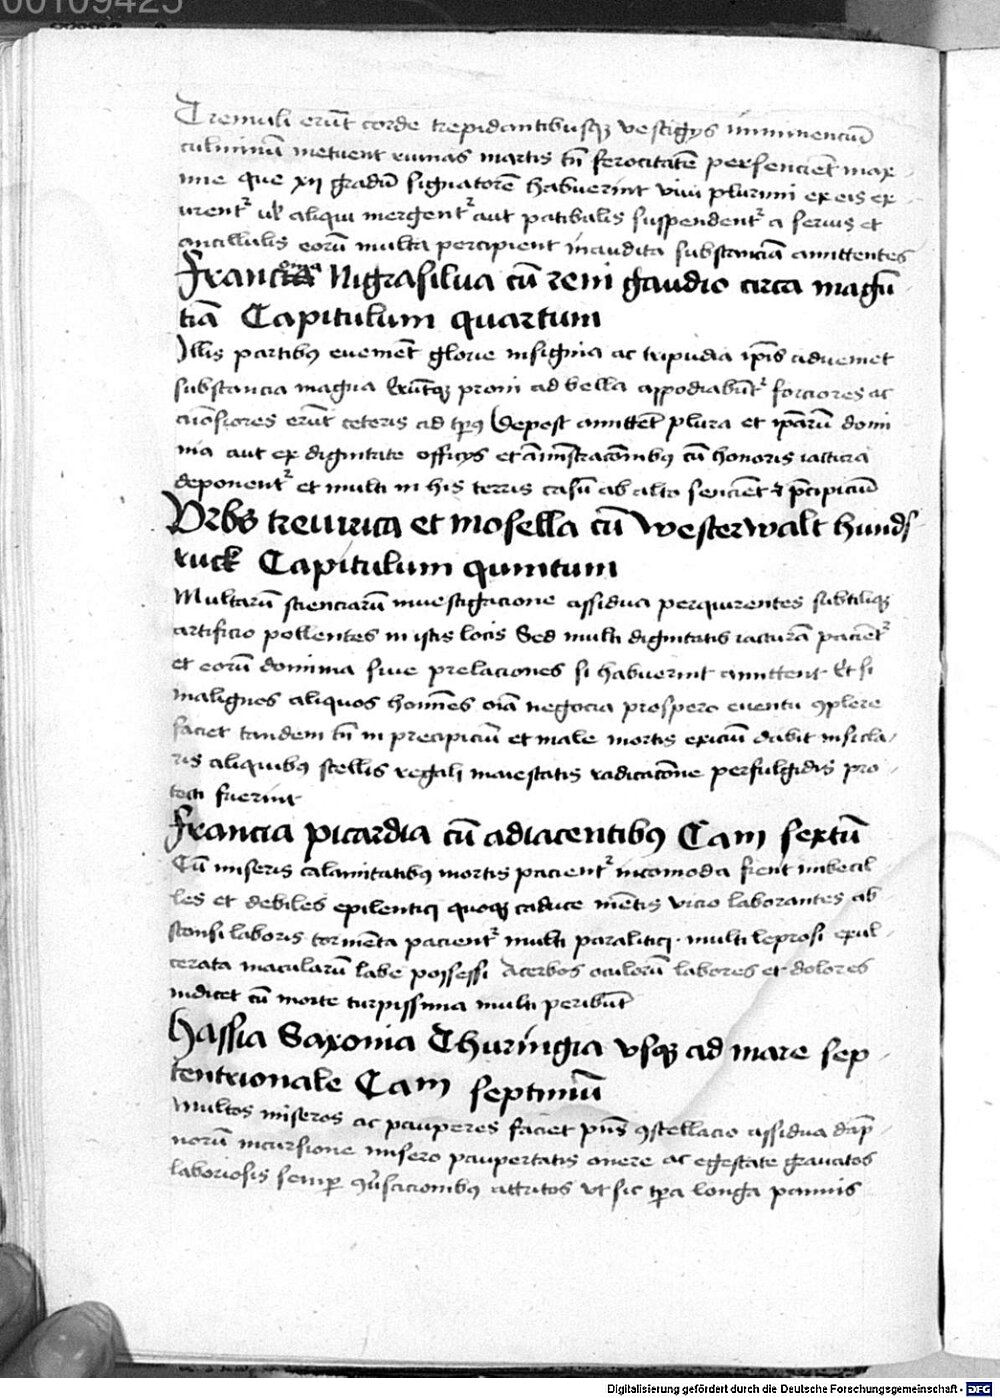 00109425
Tremuli erūt corde trepidantibusqꝫ vestigijs imminenciū
culminū metuent ruinas martis tn̄ ferocitatē persencient max
ime que xij gradū signatorē habuerint viui plurimi ex eis ex
urent᷑ vl aliqui mergent᷑ aut patibulis suspendent᷑ a seruis et
ancillulis eorū multa percipient inaudita substanciā amittentes
Nigrasilua cū reni gaudio circa magū
tiā Capitulum quartum
Illis partibꝰ euenient glorie insignia ac tripudia ip̄is adueniet
substancia magna Erūtqꝫ proni ad bella appodiabūt᷑ forciores ac
erūt ceteris ad tp̄ꝰ Depost amittēt plura et ip̄arū domi
nia aut ex dignitate officijs et am̄istracōnibꝰ cū honoris iactura
deponent᷑ et multi in his terris casū ab alto sencient & p̄cipiciū
Vrbs treuirica et mosella cū westerwalt hunds
ruck Capitulum quintum
Multarū scienciarū inuestigacione assidua perquirentes subtiliqꝫ
artificio pollentes in istis locis Sed multi dignitatis iacturā pacient᷑
et eorū dominia siue prelaciones si habuerint amittent Et si
malignos aliquos hoīnes oīa negocia prospero euentu ꝯplere
faciet tandem tn̄ in precipiciū et male mortis exiciū dabit nisi cla
ris aliquibꝰ stellis regali maiestatis radicacōne perfulgidis pro
tecti fuerint
Francia picardia cū adiacentibꝰ Cam sextū
Cū miseris calamitatibꝰ mortis pacient᷑ incomoda fient imbecil
les et debiles epilentici quoqꝫ caduce mentis vicio laborantes ab
sconsi laboris tormēta pacient᷑ multi paralitici · multi leprosi exul
cerata macularū labe possessi Acerbos oculorū labores et dolores
indicet cū morte turpissima multi peribūt
Hassia Saxonia Thuringia vsqꝫ ad mare sep
tentrionale Cam septimū
Multos miseros ac pauperes faciet pn̄s ꝯstellacio assidua dāp
norū incursione misero paupertatis onere ac egestate grauatos
laboriosis semp attritos vt sic tp̄a longa pannis
Digitalisierung gefördert durch die Deutsche Forschungsgemeinschaft - DFG